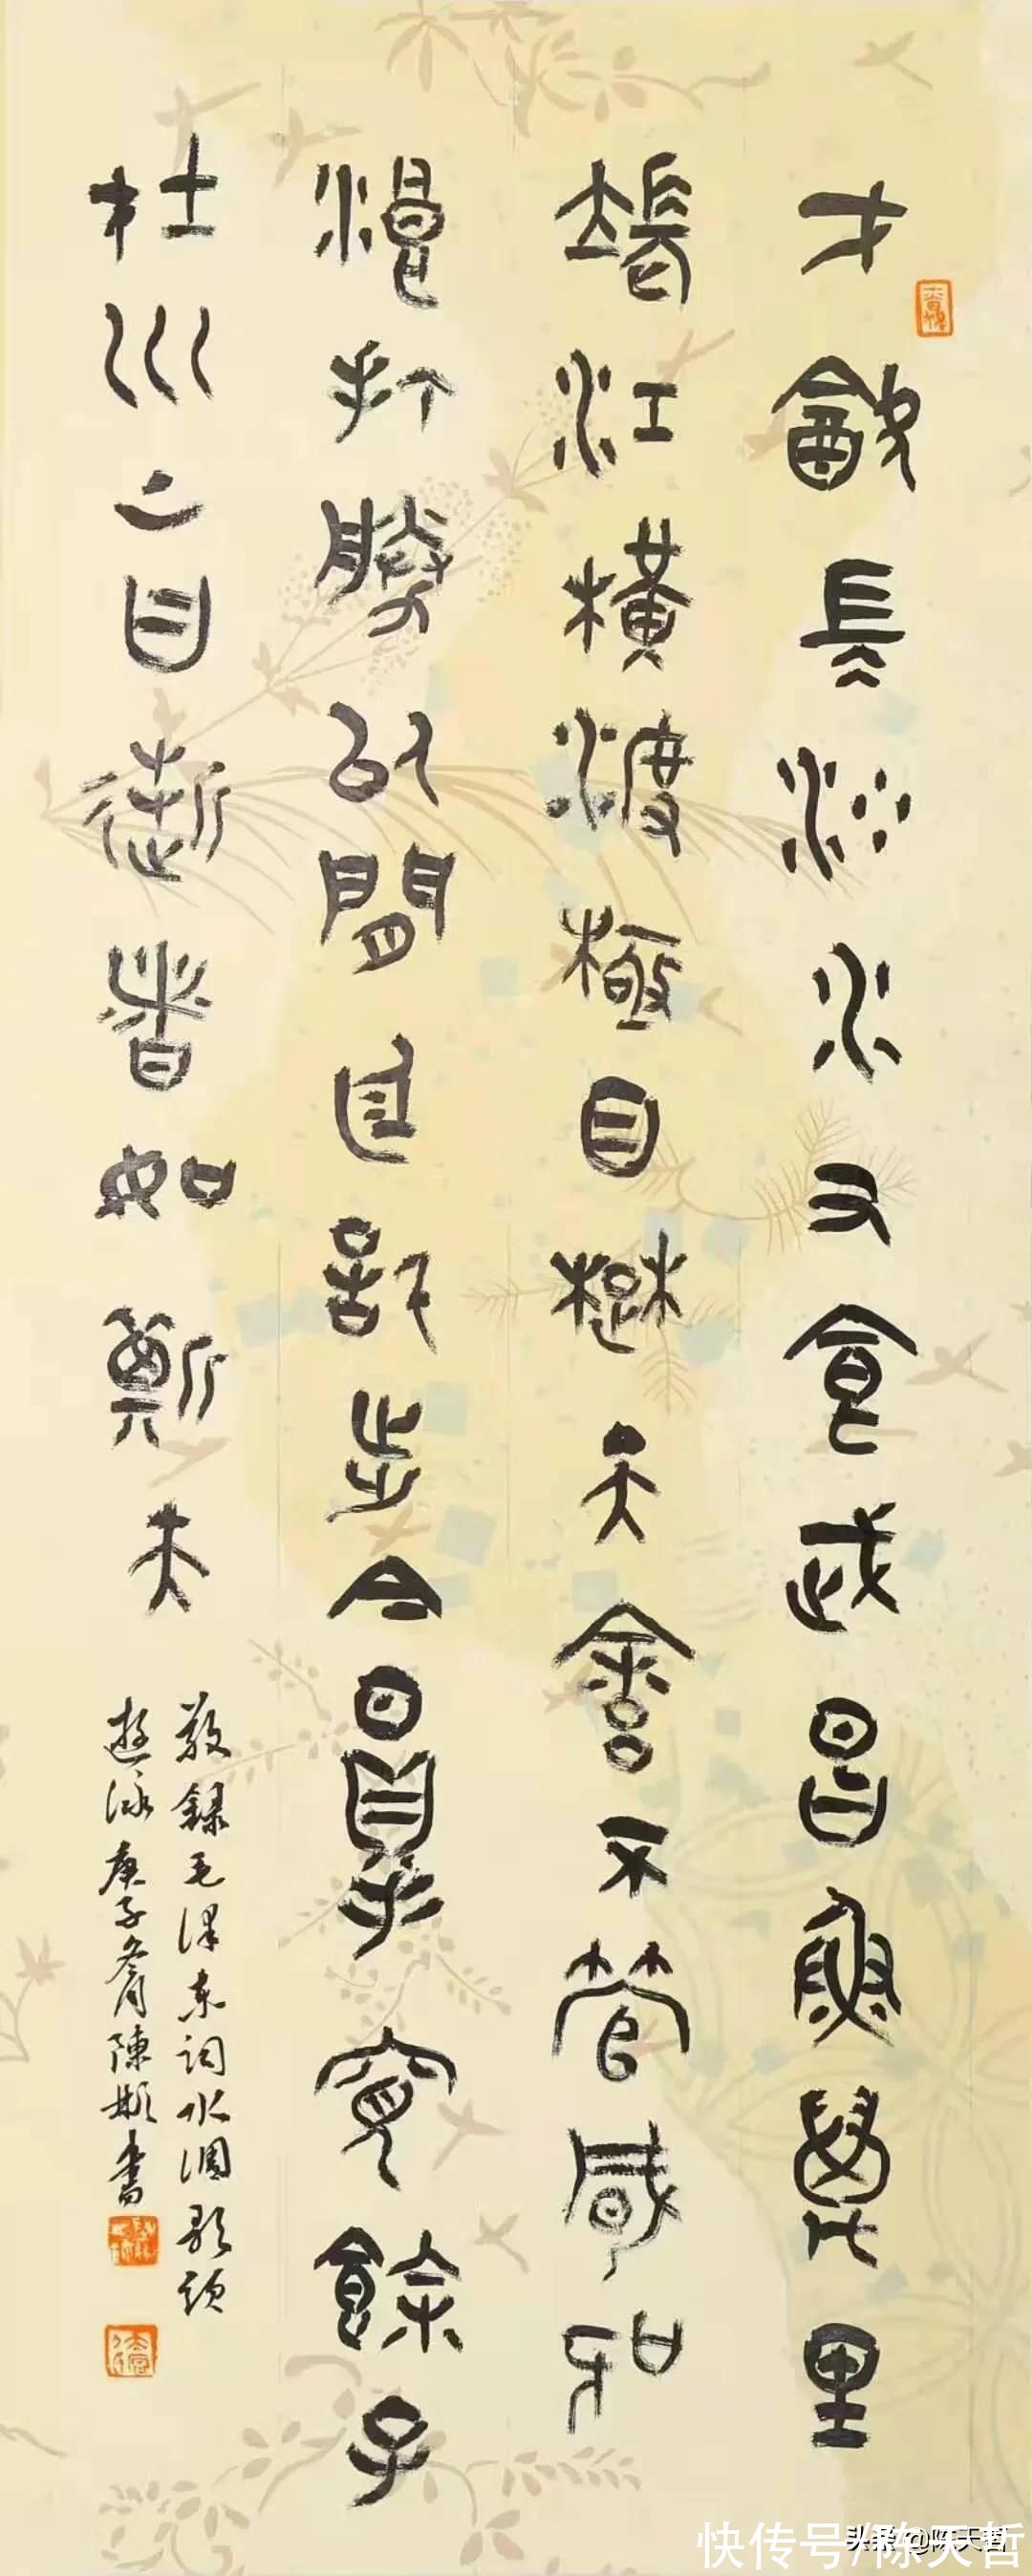 才飲長沙水又食武昌魚萬里
長江橫渡極目楚天舒不管風吹
浪打勝似閒庭信步今日得寬餘子
在川上曰逝者如斯夫
敬錄毛澤東詞水調歌頭
遊泳庚子陳書
头条 @陈天哲
快传号/陈天哲